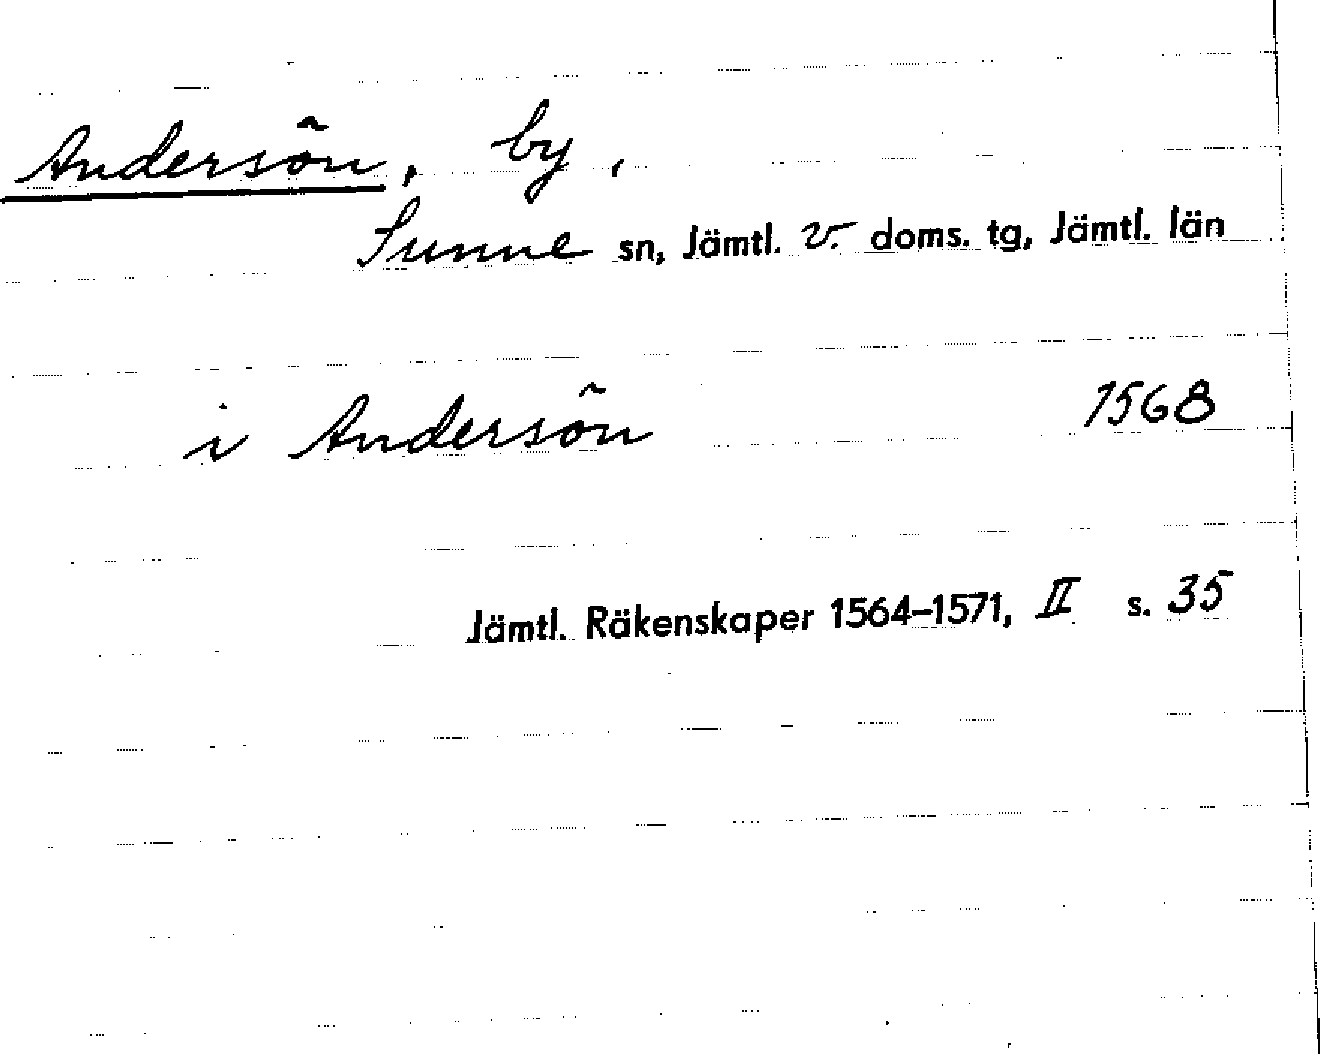 Andersön, by,
Sunne sn, Jämtl. v. doms. tg, Jämtl. län
i Andersön 1568
Jämtl. Räkenskaper 1564–1571, II s. 35